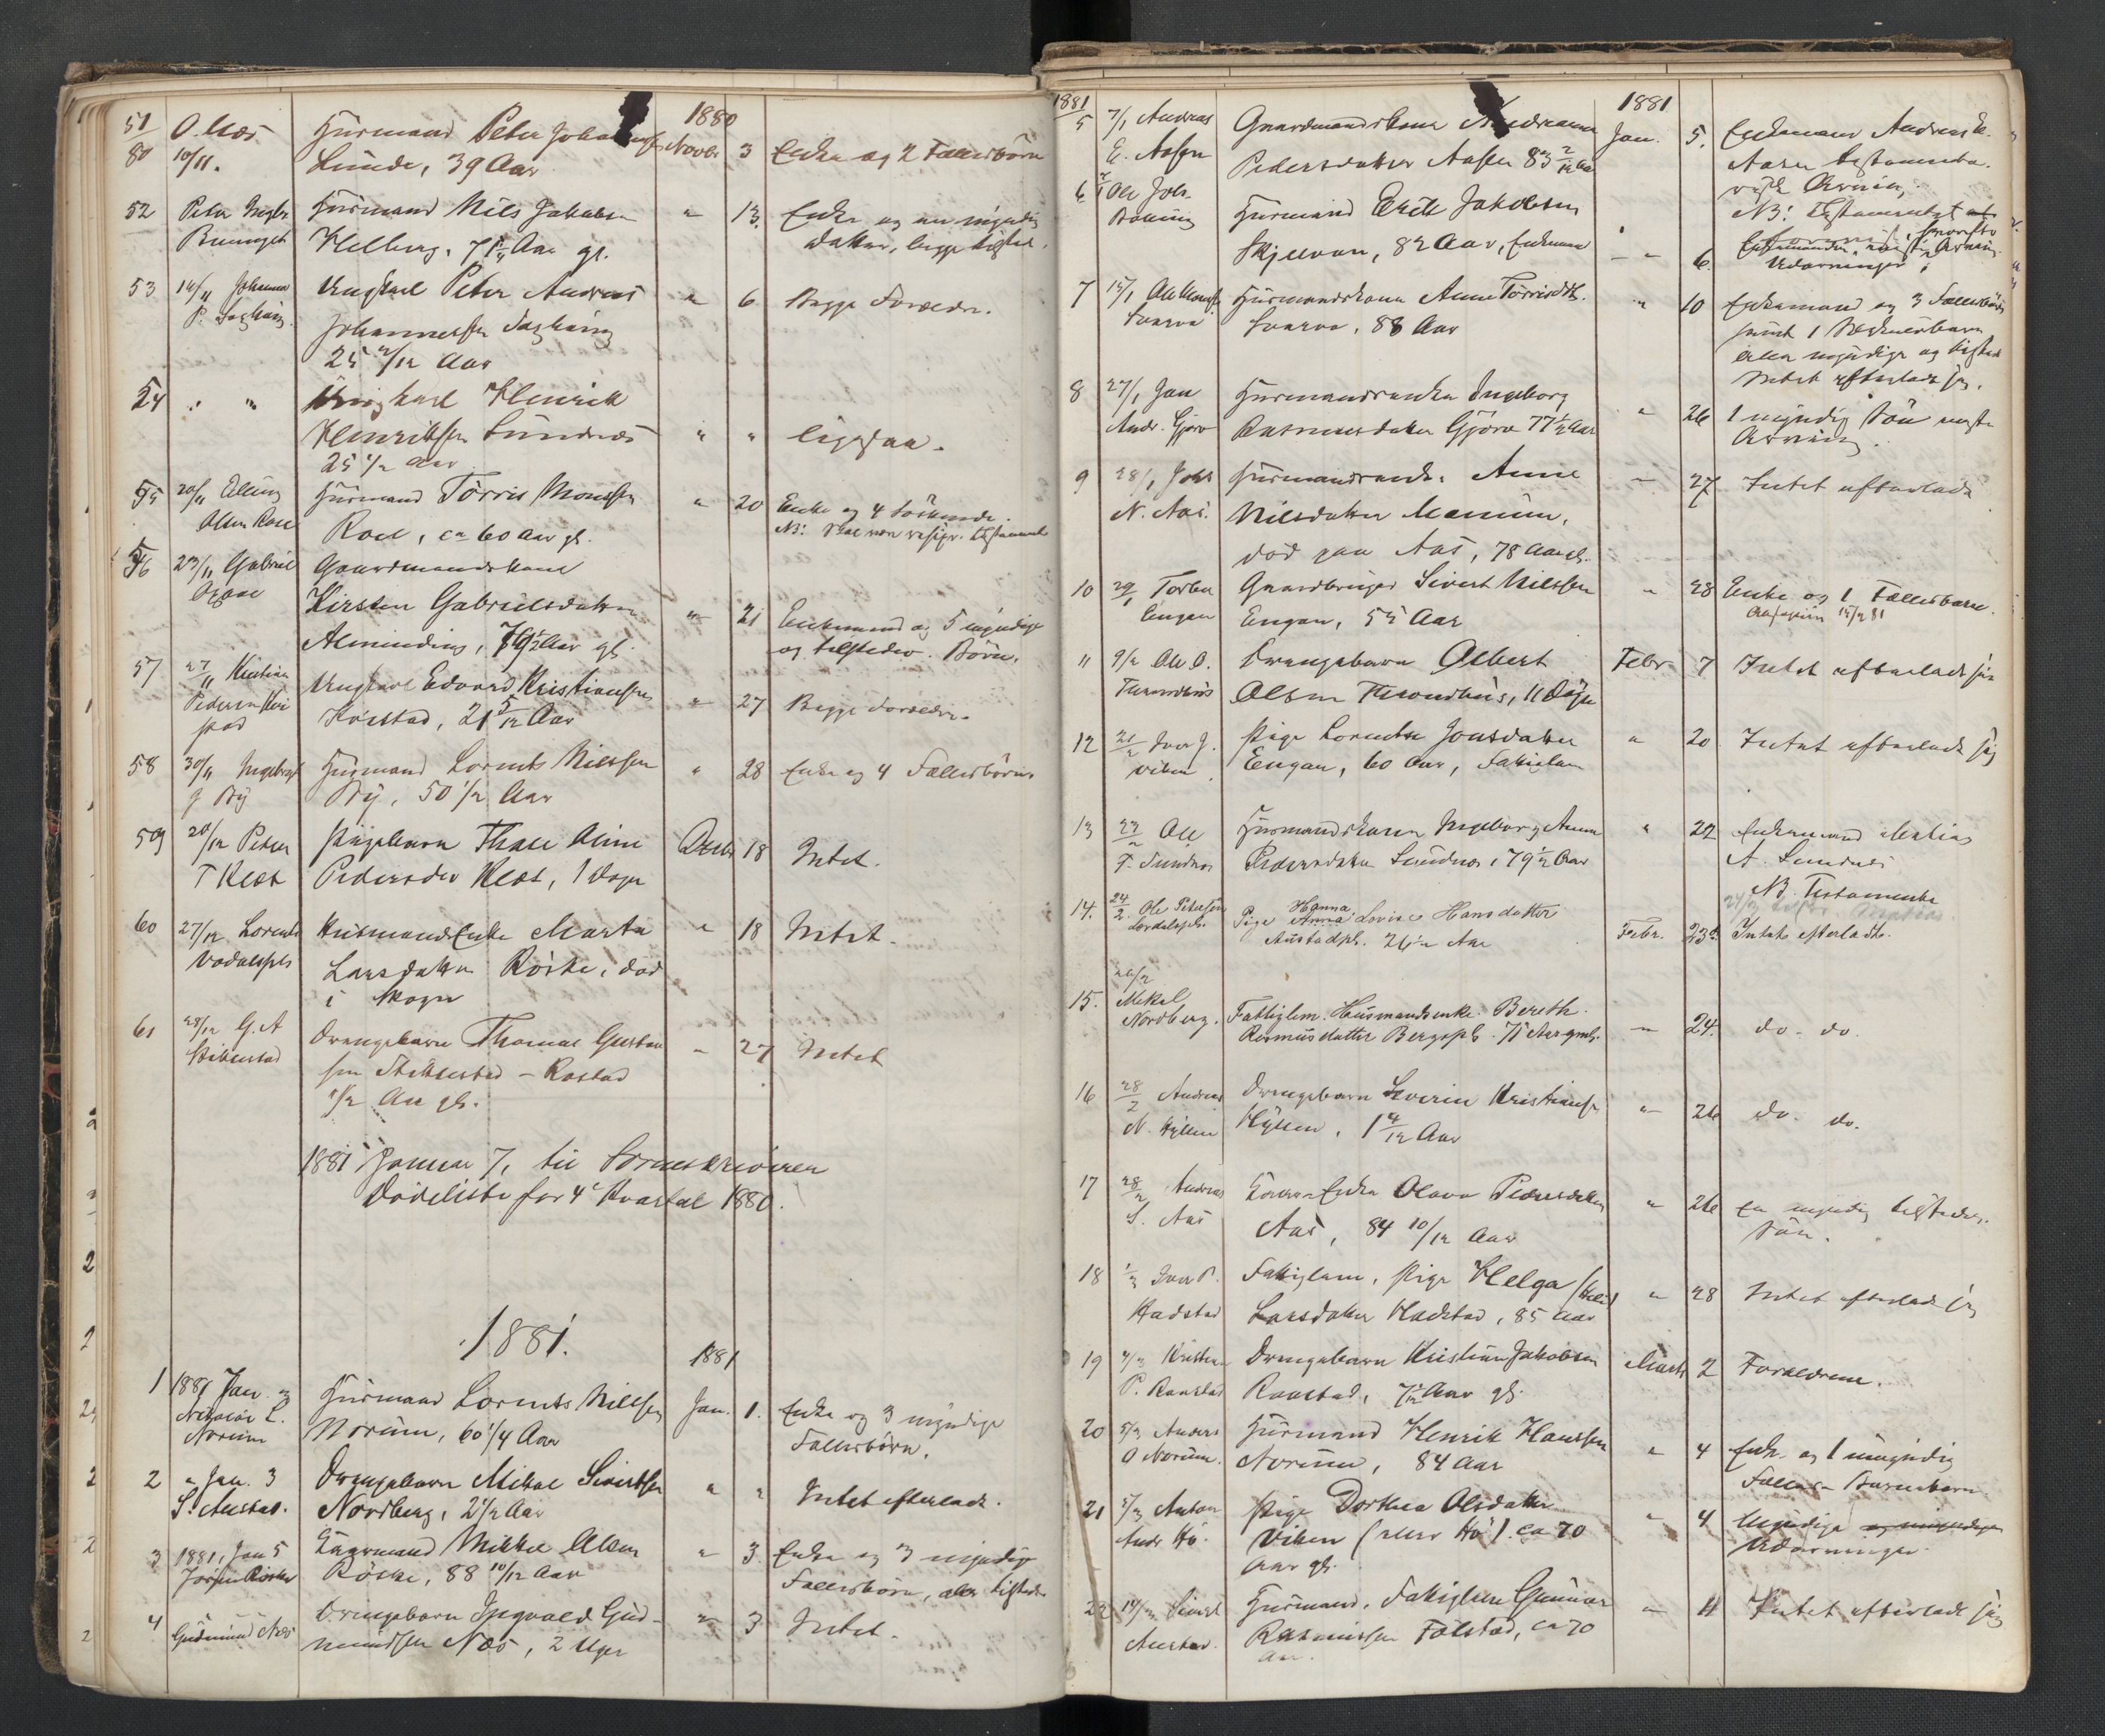 51 O. Næs Husmand Peter Johansen 1880 Novbr 3 Enke og 2 Fællesbørn
80 10/11. Lunde, 39 Aar
52 Peter Husmand Nils Jakobsen " 13. Enke og en myndig
Helberg, Aar gl. Datter, begge tilstede.
53 Johannes Ungkarl Peter Andreas " 6 Begge Forældre.
P. Johannessen
25 Aar
54 " " Ungkarl Henrik
Henriksen Sundnes " " ligesaa.
25 1/2 Aar
55 20/11 Elling Husmand Tørris Monssen " 20 Enke og 4 Søskende.
Olsen Roel Roel, ca 60 Aar gl. NB: Skal være Testament
56 23/11 Gabriel Gaardmandskone
Kirsten Gabrielsdatter " 21 Enkemand og 5 myndige
Alminding, 79 1/2 Aar gl. og tilstedev. Børn.
57 27/11 Kristian Ungkarl Edvard Kristiansen " 27 Begge Forældre.
Pedersen Kvistad, 21 5/12 Aar
58 30/11 Ingebrigt Husmand Lornts Nilssen " 28 Enke og 4 Fællesbørn
By By, 50 1/2 Aar
59 20/12 Peder Pigebarn Thale Aline Decbr 18 Intet.
T Pedersdtr 1 Dage
60 27/12 Lorents Husmandsenke Marta " 18 Intet.
Larsdatter Røske, død
i Skogn
61 28/12 G. A Drengebarn Thomas Gustav " 27 Intet
Stiklestad sen Stiklestad - Rostad
1/2 Aar gl.
1881 Januar 7, til Sorenskriveren
Dødsliste for 4e Kvartal 1880.
1881.
1 1881 Jan. Husmand Lornts Nilssen 1881 Jan. 1. Enke og 3 myndige
Nikolai L. Norum Norum, 60 1/4 Aar Fællesbørn.
2 " Jan. 3 Drengebarn Mikal Sivertsen " " Intet efterladt.
S. Austad. Nordberg, 2 1/2 Aar
3 1881, Jan 5 Mikkel Olsen " 3. Enke og 3 myndige
Røske, 88 10/12 Aar Fællesbørn, alle tilstede
4 Gudmund Næs Drengebarn Ingvald Gud- " 3 Intet.
mundsen Næs, 2 Uger
1881 1881
5 7/1 Andreas Gaardmandskone Andreanna Jan. 5. Enkemand Andreas E.
E. Aasen Pedersdatter Aasen 83 2/12 Aar Aasen testamenta-
risk Arving.
NB: Testamentet
6 Ole Joh. Husmand Erik Jakobsen
Skjelvan, 82 Aar, Enkemand " " 6. Udarvinger
7 15/1 Ole Husmandskone Anne Tørrisdtr. " 10 Enkemand og 3 Fællesbørn
88 Aar samt 1 Barnebarn
alle myndige og tilstede
Intet efterladt sig.
8 27/1 Jan Husmandsenke Ingeborg " 26 1 myndig Søn eneste
Andr. Gjørv Rasmusdatter Gjørv 77 1/2 Aar Arving.
9 28/1 Johs Husmandsenke Anne " 27 Intet efterladt
N. Aas. Nilsdatter
død paa Aas, 78 Aar gl.
10 29/1 Torber Gaardbruger Sivert Nilssen " 28 Enke og 1 Fællesbarn.
Engan Engan, 55 Aar
11 9/2 Ole O. Drengebarn Albert Febr. 7 Intet efterladt sig
Olsen 11 Dage
12 21/2 Iver J. Pige Lorentse Jonsdatter " 20 Intet efterladt sig
Viken Engan, 60 Aar, Fattiglem
13 23/2 Ole Husmandskone Ingeborg Anna " 22 Enkemand Matias
Sundnes Pedersdatter Sundnes, 79 1/2 Aar A. Sundnes
NB. Testamente
14. 24/2. Ole Petersen Pige Hanna Lovise Hansdatter Febr. 23d Intet efterladt.
Austadpl. 26 1/2 Aar
15. 26/2 Mikal Fattiglem. Husmandsenke Bereth " 24. do. do.
Nordberg. Rasmusdatter Bergspl. 75 Aar gml.
16 28/2 Andreas Drengebarn Severin Kristiansen " 26 do. do.
N. Hyllen Hyllen, 1 4/12 Aar
17 28/2 Andreas Enke Olava Pedersdatter " 26 En myndig tilstedev.
S. Aas Aas, 84 10/12 Aar Søn.
18 1/3 Iver P. Fattiglem, Pige Helga " 28 Intet efterladt sig
Hadstad Larsdatter Hadstad, 85 Aar
19 Kristian Drengebarn Kristian Jakobsen Marts 2 Forældrene.
P. Ranstad Ranstad, 7 1/2 Aar gl.
20 5/3 Anders Husmand Henrik Hanssen " 4 Enke og 1 umyndig
O Norum. Norum, 84 Aar Fælles-Barnebarn.
21 5/3 Anton Pige Dorthea Olsdatter " 4 Myndige og umyndige
Andr. Hø. Viken (eller Hø). ca 70 Udarvinger.
Aar gl.
22 Sivert Husmand, Fattiglem Gunnar " 11 Intet efterladt sig
Austad. Rasmussen Følstad, ca 70
Aar.